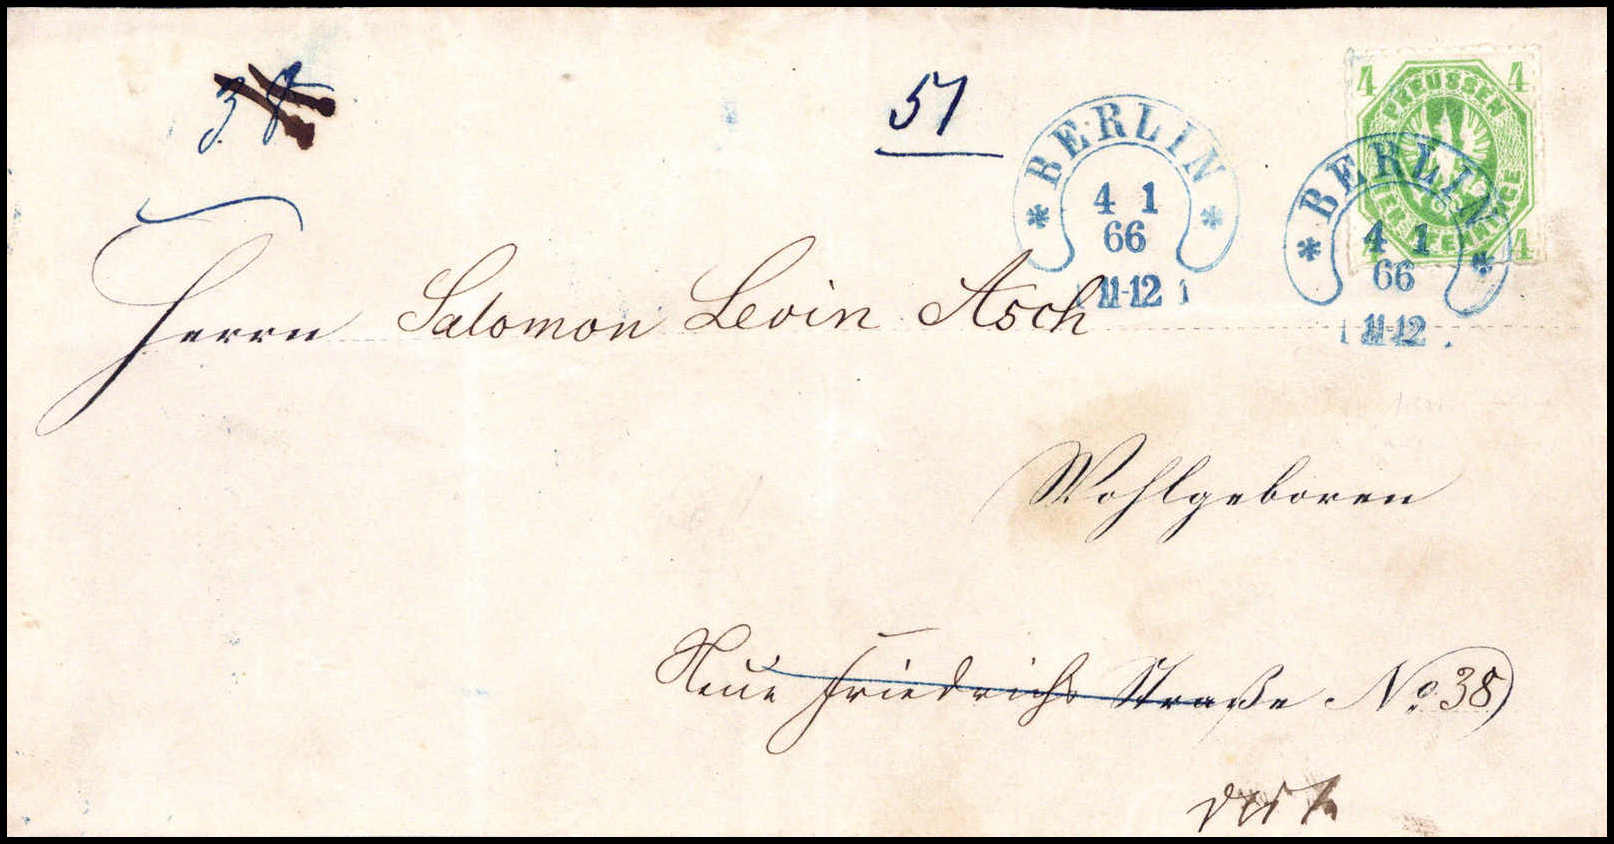 51
BERLIN
4 1
66
11-12
4 4
PREUSSEN
VIER PFENNIGE
4 4
BERLIN
4 1
66
11-12
Herrn Salomon Levin Asch
Wohlgeboren
Neue Friedrichs Straße No. 38